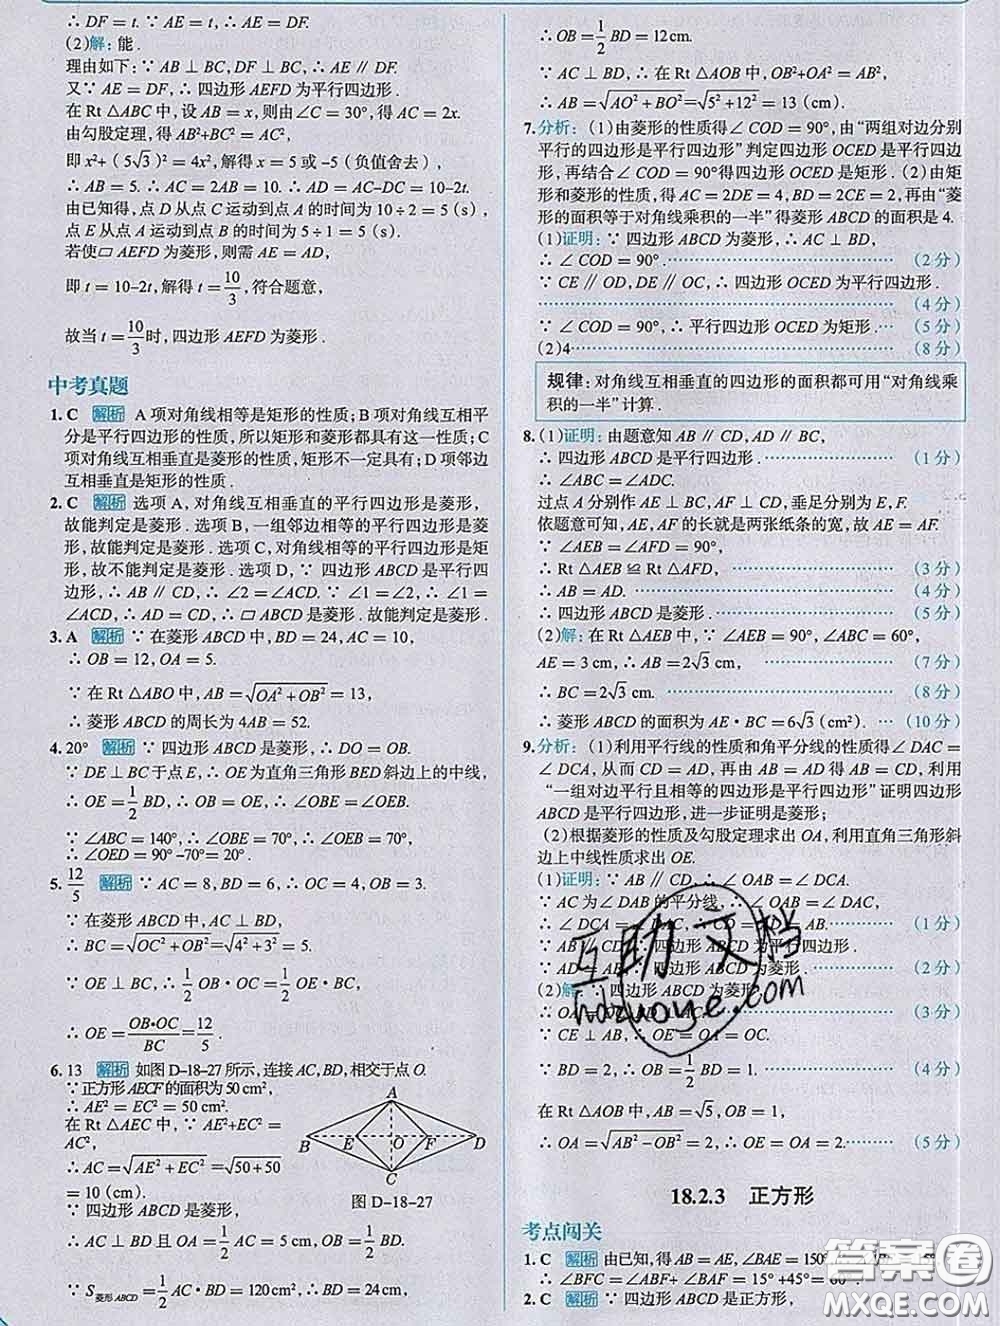 ∴ DF = t. 又∵ AE = t, ∴ AE = DF.
(2)解:能.
理由如下:∵ AB ⊥ BC, DF ⊥ BC, ∴ AE ∥ DF.
又∵ AE = DF, ∴ 四边形 AEFD 为平行四边形.
在 Rt △ABC 中,设 AB = x,则由∠C = 30°,得 AC = 2x.
由勾股定理,得 AB²+BC² = AC²,
即 x²+(5√3)² = 4x²,解得 x = 5 或 –5(负值舍去),
∴ AB = 5. ∴ AC = 2AB = 10. ∴ AD = AC–DC = 10–2t.
由已知得,点 D 从点 C 运动到点 A 的时间为 10÷2 = 5(s),
点 E 从点 A 运动到点 B 的时间为 5÷1 = 5(s).
若使▱ AEFD 为菱形,则需 AE = AD,
即 t = 10–2t,解得 t = 10/3,符合题意,
故当 t = 10/3 时,四边形 AEFD 为菱形.
中考真题
1. C 解析 A 项对角线相等是矩形的性质;B 项对角线互相平
分是平行四边形的性质,所以矩形和菱形都具有这一性质;C
项对角线互相垂直是菱形的性质,矩形不一定具有;D 项邻边
互相垂直是矩形的性质.
2. C 解析 选项 A,对角线互相垂直的平行四边形是菱形,
故能判定是菱形.选项 B,一组邻边相等的平行四边形是菱
形,故能判定是菱形.选项 C,对角线相等的平行四边形是矩
形,故不能判定是菱形.选项 D,∵ 四边形 ABCD 是平行四
边形,∴ AB ∥ CD, ∴ ∠2 = ∠ACD. ∵ ∠1 = ∠2, ∴ ∠1 =
∠ACD, ∴ AD = CD, ∴ ▱ ABCD 是菱形.故能判定是菱形.
3. A 解析 ∵ 在菱形 ABCD 中,BD = 24, AC = 10,
∴ OB = 12, OA = 5.
∵ 在 Rt △ABO 中,AB = √(OA²+OB²) = 13,
∴ 菱形 ABCD 的周长为 4AB = 52.
4. 20° 解析 ∵ 四边形 ABCD 是菱形,∴ DO = OB.
∵ DE ⊥ BC 于点 E, ∴ OE 为直角三角形 BED 斜边上的中线,
∴ OE = 1/2 BD, ∴ OB = OE, ∴ ∠OBE = ∠OEB.
∵ ∠ABC = 140°, ∴ ∠OBE = 70°, ∴ ∠OEB = 70°,
∴ ∠OED = 90°–70° = 20°.
5. 12/5 解析 ∵ AC = 8, BD = 6, ∴ OC = 4, OB = 3.
∵ 在菱形 ABCD 中,AC ⊥ BD,
∴ BC = √(OC²+OB²) = √(4²+3²) = 5.
∵ OE ⊥ BC, ∴ 1/2 OB·OC = 1/2 OE·BC,
∴ OE = OB·OC/BC = 12/5.
6. 13 解析 如图 D-18-27 所示,连接 AC, BD,相交于点 O.
∵ 正方形 AECF 的面积为 50 cm²,
∴ AE² = EC² = 50 cm².
在 Rt △AEC 中,∵ AE²+EC² =
AC²,
∴ AC = √(AE²+EC²) = √(50+50)
= 10 (cm).
∵ 四边形 ABCD 是菱形,
A
B E O F D
C
图 D-18-27
∴ AC ⊥ BD 且 OA = 1/2 AC = 5 cm, OB = 1/2 BD.
∵ S菱形ABCD = 1/2 AC·BD = 120 cm², ∴ BD = 24 cm,
∴ OB = 1/2 BD = 12 cm.
∵ AC ⊥ BD, ∴ 在 Rt △AOB 中,OB²+OA² = AB²,
∴ AB = √(AO²+BO²) = √(5²+12²) = 13 (cm).
7. 分析:(1)由菱形的性质得∠ COD = 90°,由“两组对边分别
平行的四边形是平行四边形”判定四边形 OCED 是平行四边
形,再结合∠ COD = 90°得四边形 OCED 是矩形.(2)由矩
形和菱形的性质,得 AC = 2DE = 4, BD = 2CE = 2,再由“菱
形的面积等于对角线乘积的一半”得菱形 ABCD 的面积是 4.
(1)证明:∵ 四边形 ABCD 为菱形,∴ AC ⊥ BD,
∴ ∠ COD = 90°.……(2分)
∵ CE ∥ OD, DE ∥ OC, ∴ 四边形 OCED 为平行四边形.
……(4分)
∵ ∠ COD = 90°, ∴ 平行四边形 OCED 为矩形.…(5分)
(2)4……(8分)
规律:对角线互相垂直的四边形的面积都可用“对角线乘
积的一半”计算.
8. (1)证明:由题意知 AB ∥ CD, AD ∥ BC,
∴ 四边形 ABCD 是平行四边形.……(1分)
∴ ∠ABC = ∠ADC.
过点 A 分别作 AE ⊥ BC, AF ⊥ CD,垂足分别为 E, F.
依题意可知,AE, AF 的长就是两张纸条的宽,故 AE = AF.
∵ ∠AEB = ∠AFD = 90°,
∴ Rt △AEB ≌ Rt △AFD,……(3分)
∴ AB = AD.……(4分)
∴ 四边形 ABCD 是菱形.……(5分)
(2)解:在 Rt △AEB 中,∵ ∠AEB = 90°, ∠ABC = 60°,
AE = 3 cm, ∴ AB = 2√3 cm,……(7分)
∴ BC = 2√3 cm.……(8分)
∴ 菱形 ABCD 的面积为 AE·BC = 6√3 (cm²).…(10分)
9. 分析:(1)利用平行线的性质和角平分线的性质得∠ DAC =
∠ DCA,从而 CD = AD,再由 AB = AD 得 AB = CD,利用
“一组对边平行且相等的四边形是平行四边形”证明四边形
ABCD 是平行四边形,进一步证明是菱形;
(2)根据菱形的性质及勾股定理求出 OA,利用直角三角形斜
边上中线性质求出 OE.
(1)证明:∵ AB ∥ CD, ∴ ∠ OAB = ∠ DCA.
∵ AC 为∠ DAB 的平分线,∴ ∠ OAB = ∠ DAC,
∴ ∠ DCA = ∠ DAC, ∴ CD = AD = AB.……(1分)
∵ AB ∥ CD, ∴ 四边形 ABCD 为平行四边形.
∵ AD = AB, ∴ 四边形 ABCD 为菱形.……(2分)
(2)解:∵ 四边形 ABCD 为菱形,
∴ OA = OC, BD ⊥ AC.……(3分)
∵ CE ⊥ AB, ∴ OE = OA = OC.
∵ BD = 2, ∴ OB = 1/2 BD = 1.……(4分)
在 Rt △AOB 中,AB = √5, OB = 1,
∴ OA = √(AB²–OB²) = 2, ∴ OE = OA = 2.……(5分)
18.2.3 正方形
考点闯关
1. C 解析 由已知,得 AB = AE, ∠BAE = 150°
∴ ∠BFC = ∠ABF+ ∠BAF = 15°+45° = 60°.
2. C 解析 ∵ 四边形 ABCD 是正方形,
互助文档
hdzuoye.com
答案圈
MXQE.COM